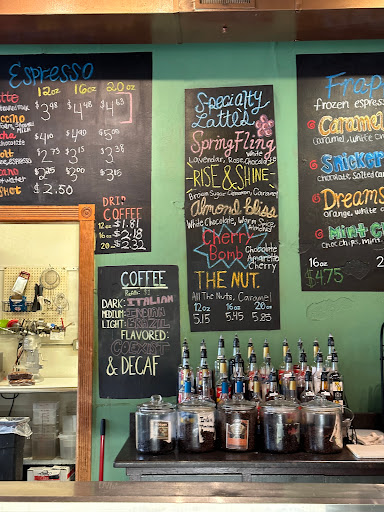 Espresso
12oz 16oz 20oz
$3.98 $4.48 $4.63
$4.10
$5.00
$2.73 $3.15 $3.38
SHOT $2.50
DRIP
COFFEE
12oz 1.81
16oz $2.18
20oz $2.32
COFFEE
DARK: ITALIAN
MEDIUM:
LIGHT: BRAZIL
FLAVORED:
& DECAF
Specialty
Lattes
Spring Fling
White
Lavendar, Rose, Chocolate
RISE & SHINE
Brown Sugar Cinnamon, Caramel
Almond bliss
White Chocolate, Warm
Almond
Cherry
Bomb
Chocolate
Amaretto
Cherry
THE NUT.
All The Nuts, Caramel
12oz 16oz 20oz
5.15 5.45 5.83
Frap
frozen espress
Caramel
caramel, white ch
Snicker
chocolate salted car
Dreams
orange, white c
Mint C
choc.chips, mint
16oz
$4.75